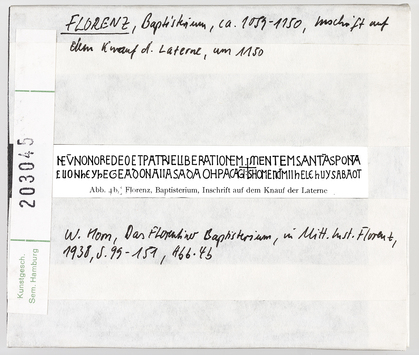 FLORENZ, Baptisterium, ca. 1059-1150, Inschrift auf
dem Knauf d. Laterne, um 1150
203045
NONOREDEOETPATRIELIBERATIONEM MENTEMSANTASPONA
Abb. 4b, Florenz, Baptisterium, Inschrift auf dem Knauf der Laterne
W. Horn, Das Florentiner Baptisterium, in Mitt. Inst. Florenz,
1938, S. 95-151, Abb. 4b
Kunstgesch.
Sem. Hamburg